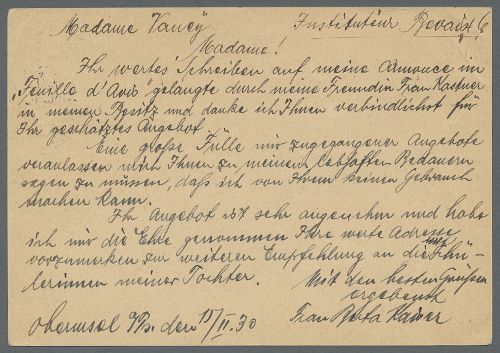 Madame Vancÿ Instituteur Bevaix
Madame!
Ihr wertes Schreiben auf meine Annonce im
„Feuille d'Avis" gelangte durch meine Freundin Frau Kastner
in meinen Besitz und danke ich Ihnen verbindlichst für
Ihr geschätztes Angebot.
Eine große Fülle mir zugegangener Angebote
veranlassen mich Ihnen zu meinem lebhaften Bedauern
sagen zu müssen, daß ich von Ihrem keinen Gebrauch
machen kann.
Ihr Angebot ist sehr angenehm und habe
ich mir die Ehre genommen Ihre werte Adresse
vorzumerken zur weiteren Empfehlung an die Mitschü-
lerinnen meiner Tochter.
Mit den besten Grüßen
ergebenst
Oberursel a/Ts. den 15/II.30 Frau Berta Kaiser